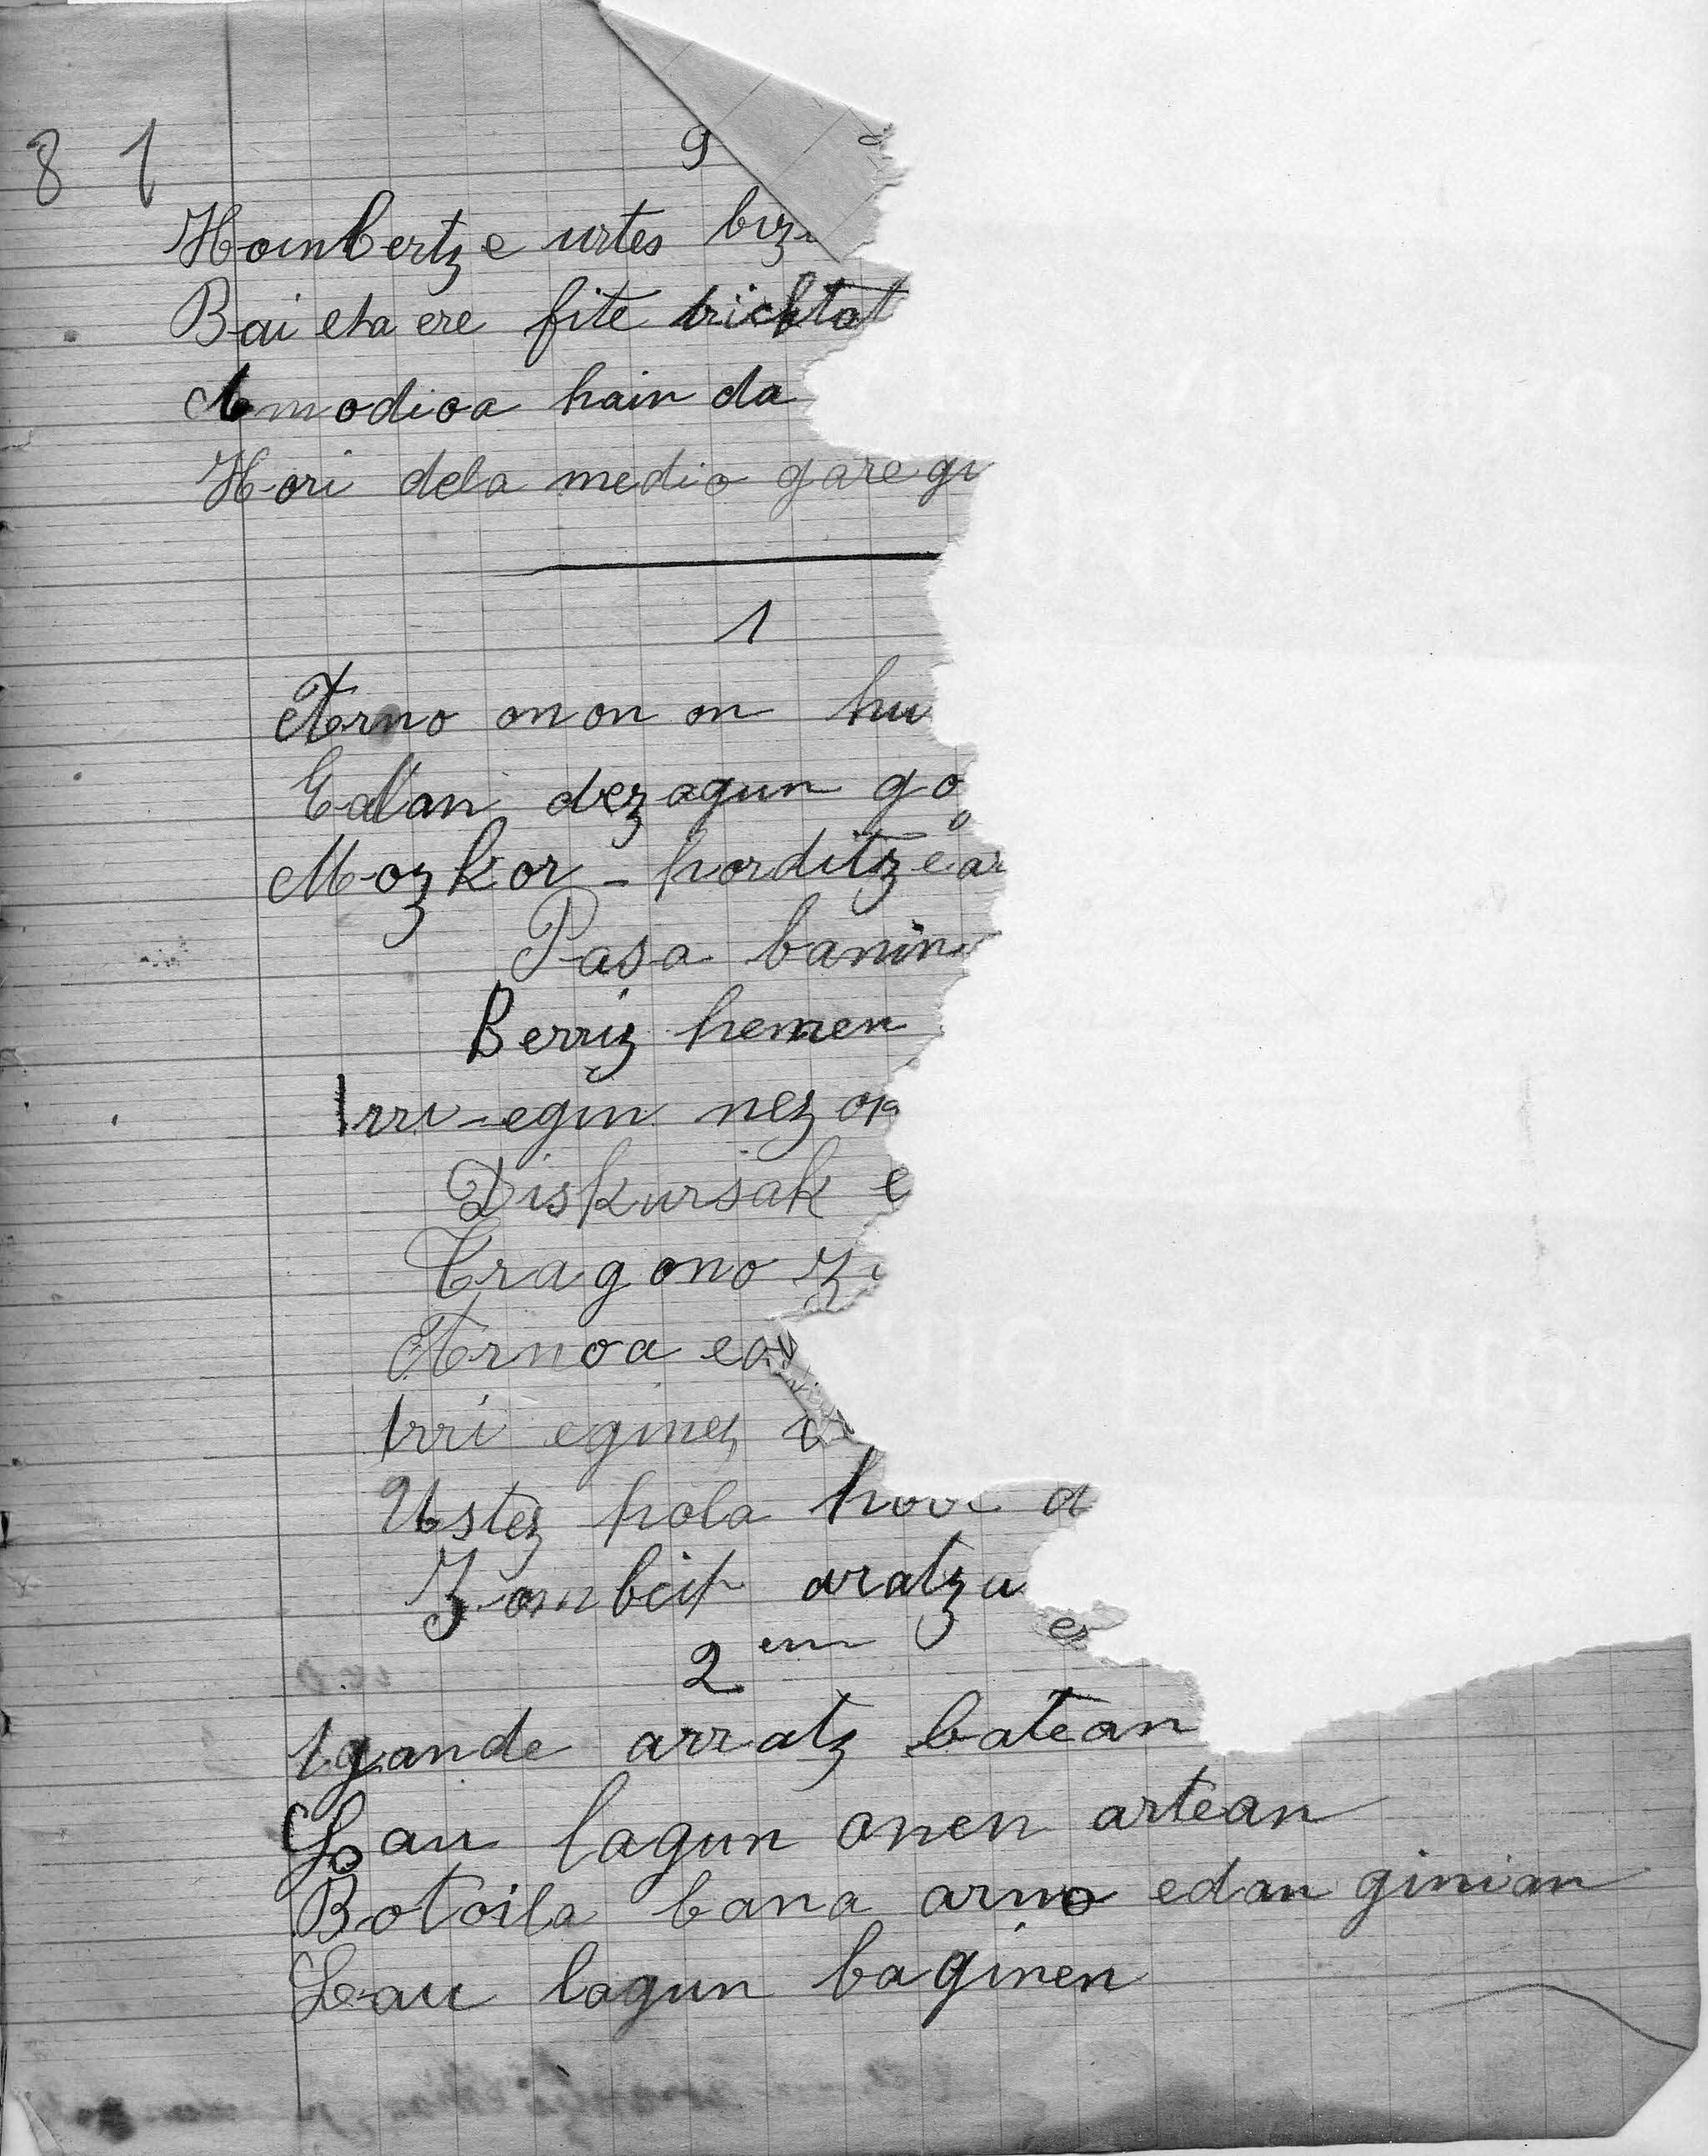 81
9
Hoinbertze urtes bizi
Bai eta ere fite trichtat
Amodioa hain da
Hori dela medio gare gi
1
Arno on on on hu
Edan dezagun go
Mozkor - horditzear
Pasa banin
Berriz hemen
Irri-egin nez
Diskursak e
Tragono
Arnoa
Irri eginez
Ustez hola hori
Zombeit aratzu
2
Igande arratz batean
Lau lagun onen artean
Botoila bana arno edan ginian
Lau lagun baginen